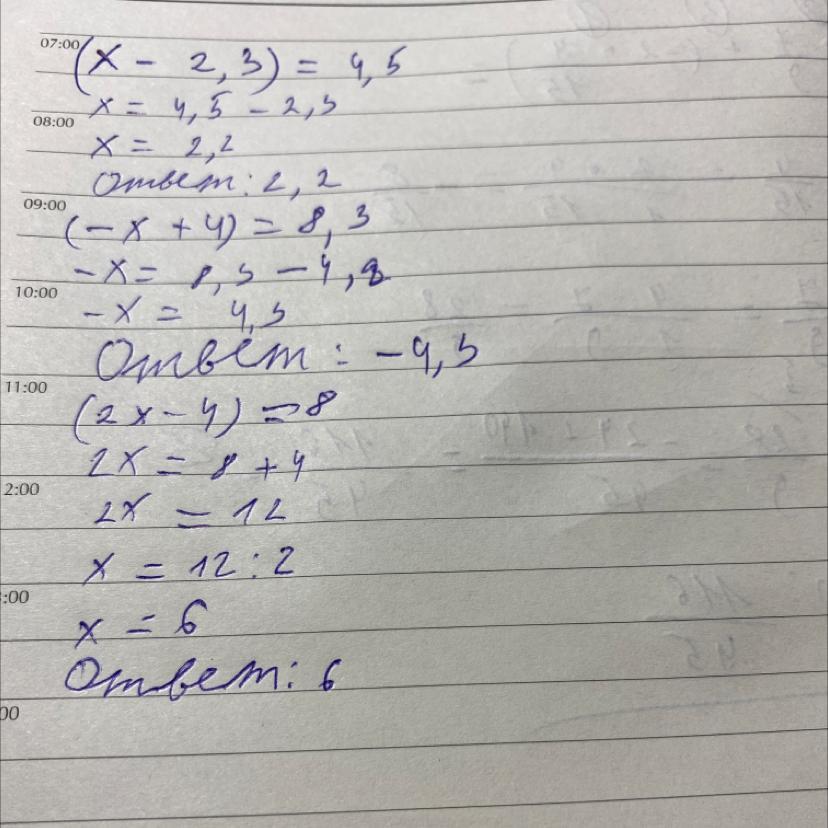 07:00
(x - 2,3) = 4,5
x = 4,5 - 2,3
08:00
x = 2,2
Ответ: 2,2
09:00
(-x + 4) = 8,3
-x = 8,3 - 4,8
10:00
-x = 4,3
Ответ: -4,3
11:00
(2x - 4) = 8
2x = 8 + 4
2:00
2x = 12
x = 12 : 2
:00
x = 6
Ответ: 6
00